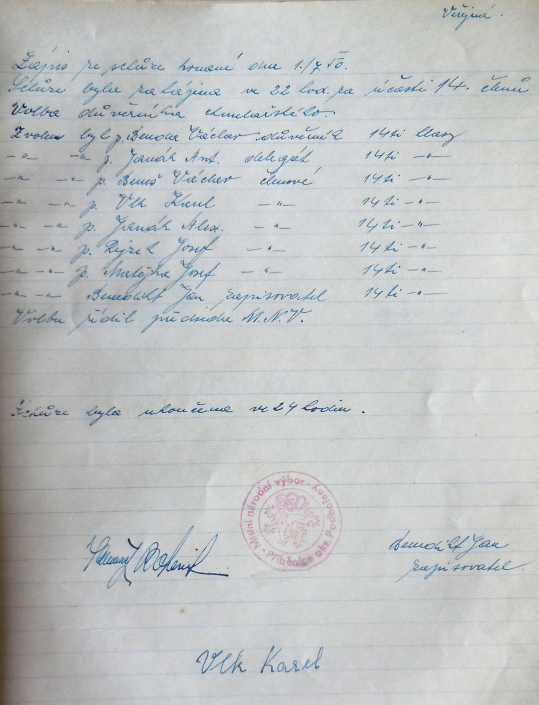 Veřejná.
Zápis ze schůze konané dne 1./7. 50.
Schůze byla zahájena ve 22 hod. za účasti 14. členů
Volba důvěrníka chmelařského.
Zvolen byl p. Benda Václav důvěrník 14ti hlasy
-"- -"- p. Janák Ant. delegát 14ti -"-
-"- -"- p. Beneš Václav členové 14ti -"-
-"- -"- p. Vlk Karel -"- 14ti -"-
-"- -"- p. Janák Alex. -"- 14ti -"-
-"- -"- p. Rejzek Josef -"- 14ti -"-
-"- -"- p. Matějka Josef -"- 14ti -"-
-"- -"- Benedikt Jan, zapisovatel 14ti -"-
Volbu řídil předseda M.N.V.
Schůze byla ukončena ve 24 hodin.
Místní národní výbor - Příběnice okr. Podbořany
Benedikt Jan
zapisovatel.
Vlk Karel